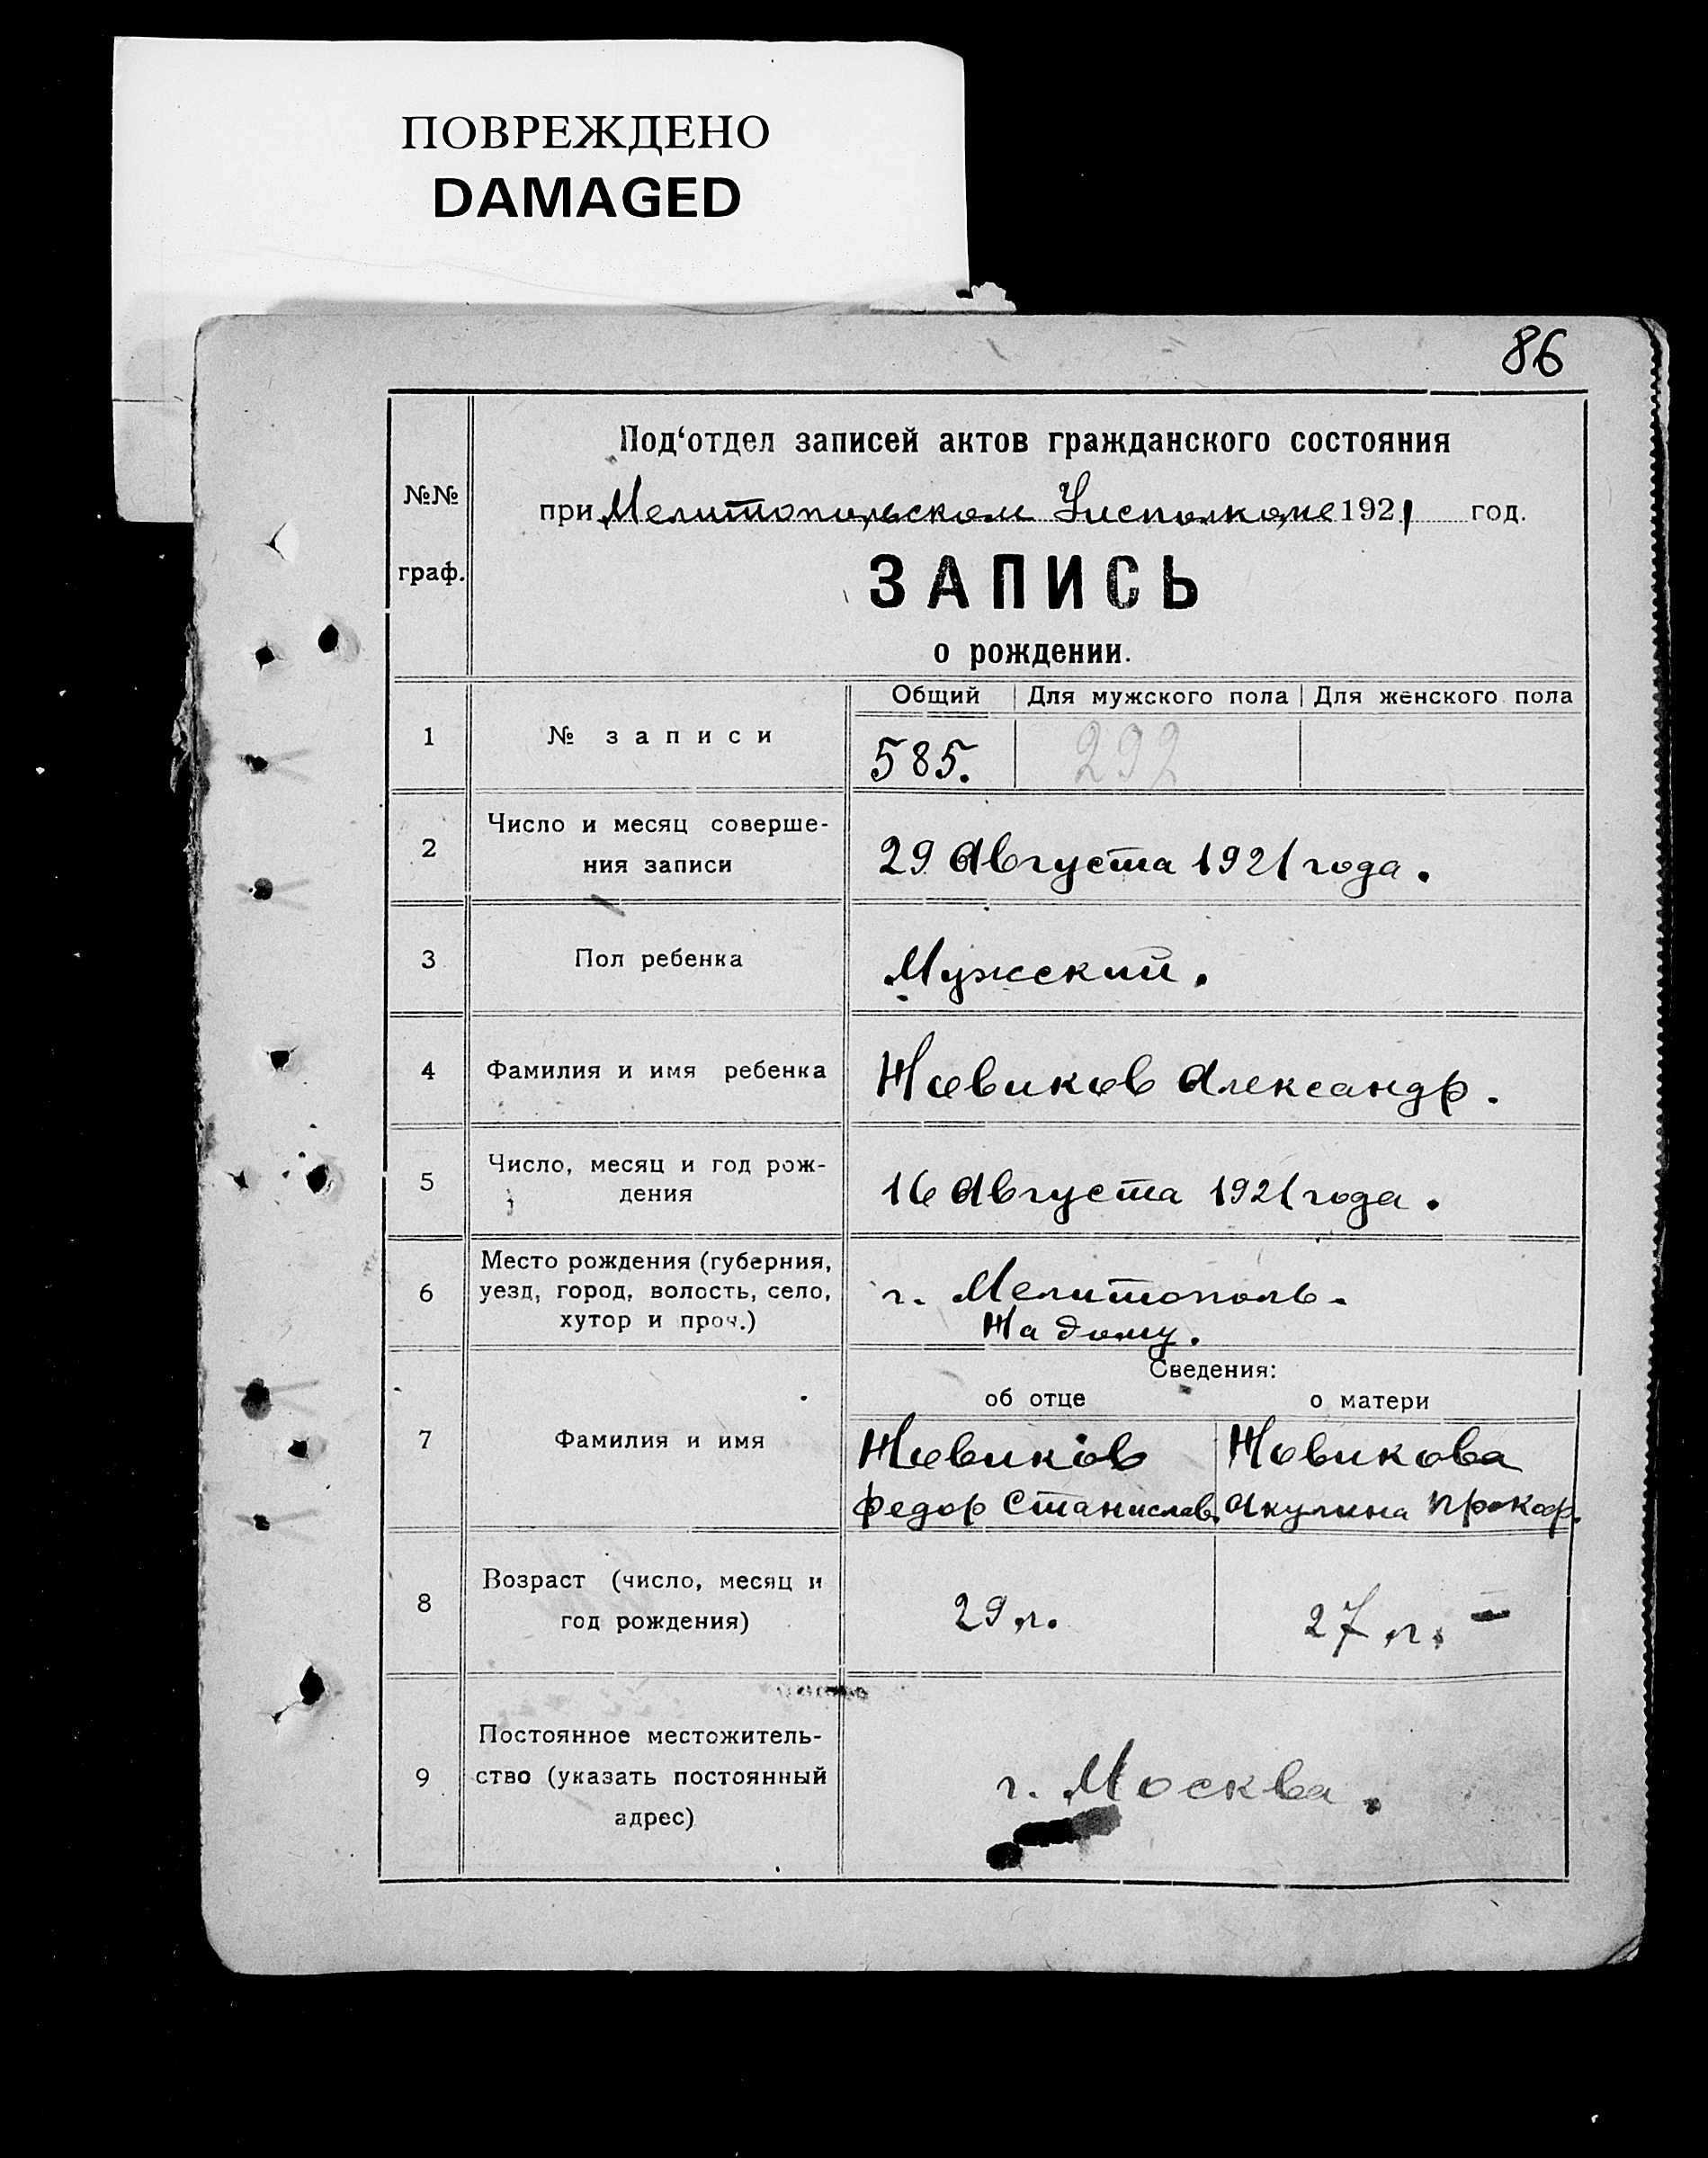 ПОВРЕЖДЕНО
DAMAGED
86
Под‘отдел записей актов гражданского состояния
№№
при Мелитопольском Уисполкоме 1921 год.
граф.
ЗАПИСЬ
о рождении.
Общий Для мужского пола Для женского пола
1 № записи 585. 292
Число и месяц соверше-
2
ния записи
29 Августа 1921 года.
3 Пол ребенка Мужский.
4 Фамилия и имя ребенка Новиков Александр.
Число, месяц и год рож-
5
дения
16 Августа 1921 года.
Место рождения (губерния,
6 уезд, город, волость, село,
хутор и проч.)
г. Мелитополь.
На дому.
Сведения:
об отце о матери
7 Фамилия и имя
Новиков Новикова
Федор Станислав. Акулина Прокоф.
Возраст (число, месяц и
8
год рождения)
29 г. 27 г.
Постоянное местожитель-
9 ство (указать постоянный
адрес)
г. Москва.